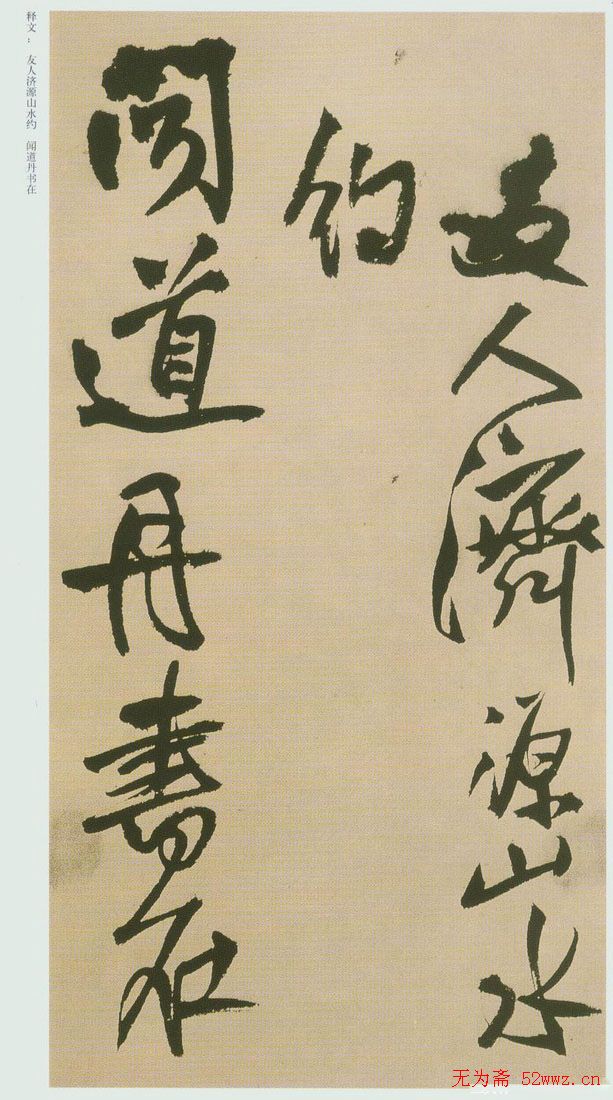 友人濟源山水
約
聞道丹書在
释文： 友人济源山水约 闻道丹书在
无为斋 52wwz.cn